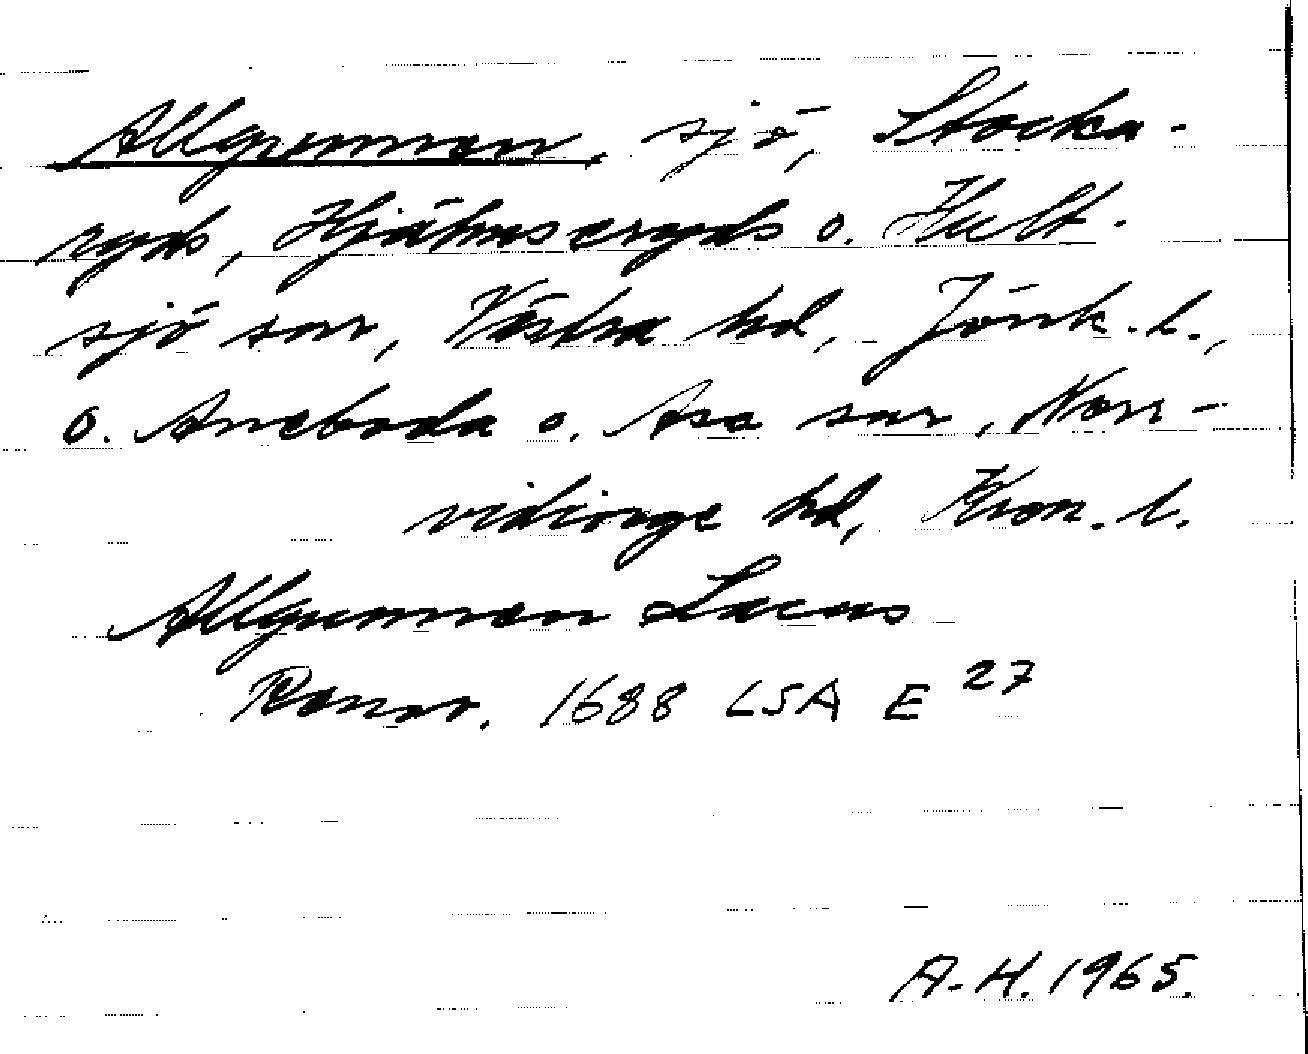 Allgunnen, sjö, Stocka-
ryds, Hjälmseryds o. Hult-
sjö snr, Västra hd, Jönk. l.,
o. Aneboda o. Asa snr, Norr-
vidinge hd, Kron. l.
Allgunnen Lacus
Rannr. 1688 LSA E 27
A.H. 1965.